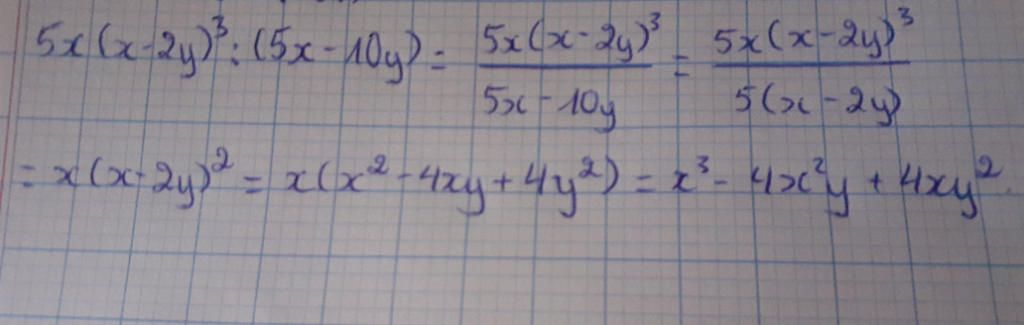 5x(x-2y)³:(5x-10y) = 5x(x-2y)³/5x-10y = 5x(x-2y)³/5(x-2y)
= x(x-2y)² = x(x²-4xy+4y²) = x³-4x²y+4xy².